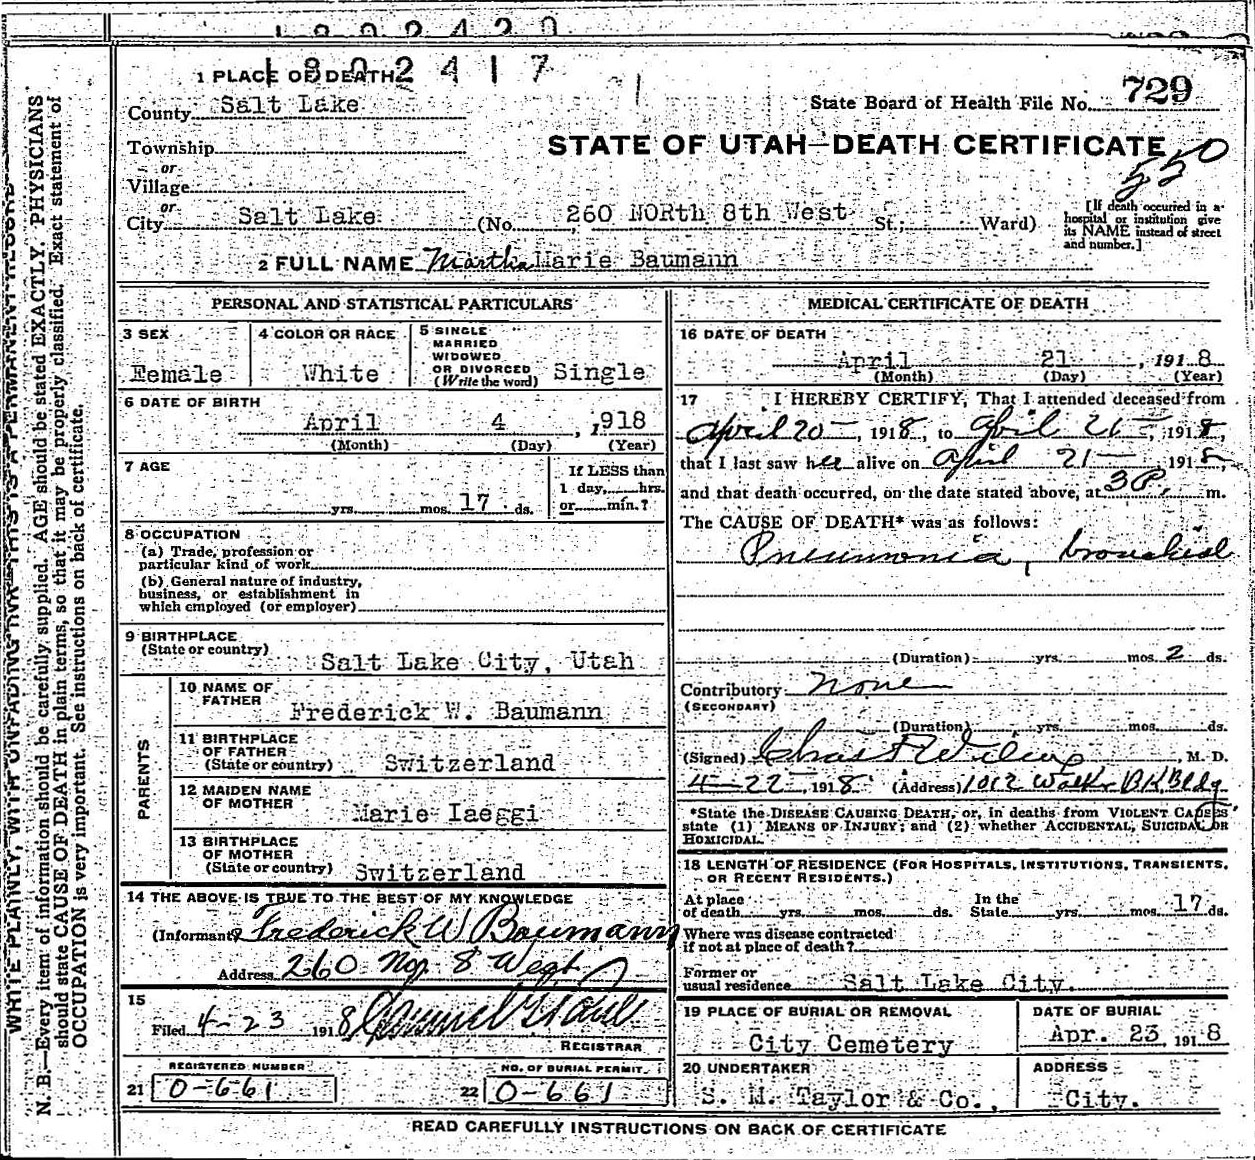 1802420
1802417
1 PLACE OF DEATH
County Salt Lake
State Board of Health File No. 729
Township
STATE OF UTAH—DEATH CERTIFICATE
550
or
Village
or
City Salt Lake (No. 260 NORth 8th West St.; Ward)
[If death occurred in a hospital or institution give its NAME instead of street and number.]
2 FULL NAME Martha Marie Baumann
PERSONAL AND STATISTICAL PARTICULARS
3 SEX
Female
4 COLOR OR RACE
White
5 SINGLE
MARRIED
WIDOWED
OR DIVORCED
(Write the word) Single
6 DATE OF BIRTH
April 4, 1918
(Month) (Day) (Year)
7 AGE
yrs. mos. 17 ds.
If LESS than
1 day, hrs.
or min.?
8 OCCUPATION
(a) Trade, profession or
particular kind of work
(b) General nature of industry,
business, or establishment in
which employed (or employer)
9 BIRTHPLACE
(State or country) Salt Lake City, Utah
PARENTS
10 NAME OF
FATHER Frederick W. Baumann
11 BIRTHPLACE
OF FATHER
(State or country) Switzerland
12 MAIDEN NAME
OF MOTHER Marie Iaeggi
13 BIRTHPLACE
OF MOTHER
(State or country) Switzerland
14 THE ABOVE IS TRUE TO THE BEST OF MY KNOWLEDGE
(Informant) Frederick W Baumann
Address 260 No. 8 West
15
Filed 4-23 1918
REGISTRAR
REGISTERED NUMBER
21 0-661
NO. OF BURIAL PERMIT
22 0-661
MEDICAL CERTIFICATE OF DEATH
16 DATE OF DEATH
April 21, 1918
(Month) (Day) (Year)
17 I HEREBY CERTIFY, That I attended deceased from
April 20—, 1918, to April 21—, 1918,
that I last saw her alive on April 21— 1918,
and that death occurred, on the date stated above, at 3P. m.
The CAUSE OF DEATH* was as follows:
Pneumonia, bronchial
(Duration) yrs. mos. 2 ds.
Contributory None
(SECONDARY)
(Duration) yrs. mos. ds.
(Signed) Chas F Wilcox, M. D.
4-22-, 1918 (Address) 1012 Walker BK Bldg
*State the DISEASE CAUSING DEATH, or, in deaths from VIOLENT CAUSES
state (1) MEANS OF INJURY; and (2) whether ACCIDENTAL, SUICIDAL OR
HOMICIDAL.
18 LENGTH OF RESIDENCE (FOR HOSPITALS, INSTITUTIONS, TRANSIENTS,
OR RECENT RESIDENTS.)
At place
of death yrs. mos. ds. In the
State yrs. mos. 17 ds.
Where was disease contracted
if not at place of death?
Former or
usual residence Salt Lake City.
19 PLACE OF BURIAL OR REMOVAL
City Cemetery
DATE OF BURIAL
Apr. 23, 1918
20 UNDERTAKER
S. M. Taylor & Co.,
ADDRESS
City.
READ CAREFULLY INSTRUCTIONS ON BACK OF CERTIFICATE
WRITE PLAINLY, WITH UNFADING INK—THIS IS A PERMANENT RECORD
N. B.—Every item of information should be carefully supplied. AGE should be stated EXACTLY. PHYSICIANS
should state CAUSE OF DEATH in plain terms, so that it may be properly classified. Exact statement of
OCCUPATION is very important. See instructions on back of certificate.